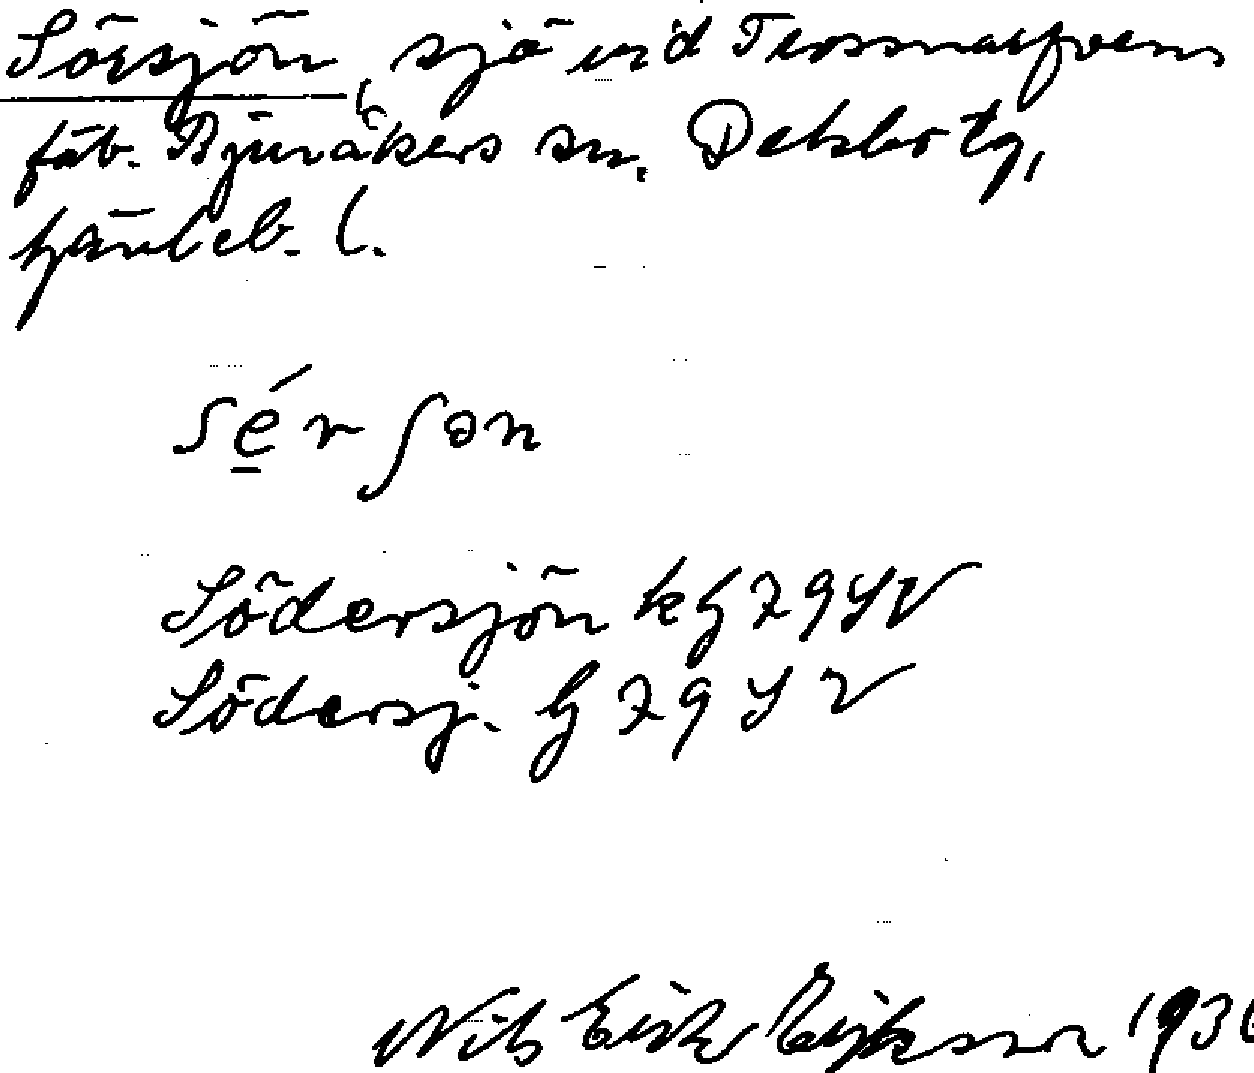 Sörsjön, sjö vid Trossnarfvens
fäb. Bjuråkers sn. Delsbo tg,
Gävleb. l.
sérʃɵn
Södersjön kG 79 SV
Södersj. G 79 S V
Nils Erik Eriksson 193